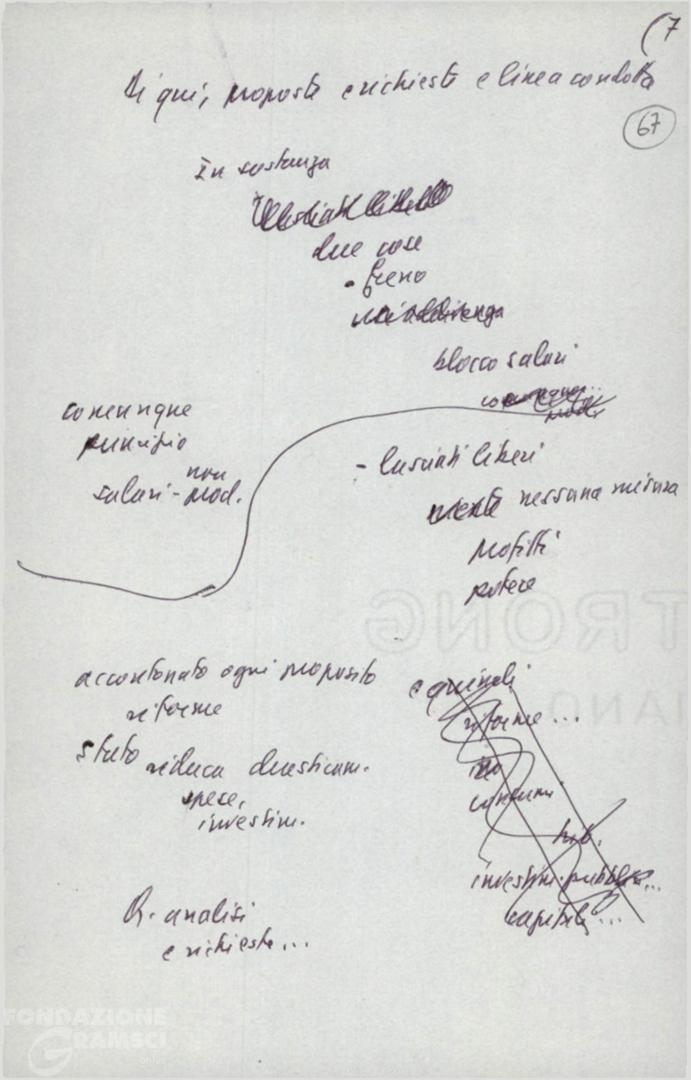 (7
Di qui, proposte e richieste e linea condotta
67
In sostanza
due cose
- freno
blocco salari
comunque
principio
non
salari - mod.
- lasciati liberi
nessuna misura
profitti
potere
accantonato ogni proposito
riforme
e quindi
riforme...
Stato riduca drasticam.
spese,
investim.
no
consumi
investim. pubbl...
capitali...
R. analisi
e richieste...
TRONG
IANO
FONDAZIONE
GRAMSCI